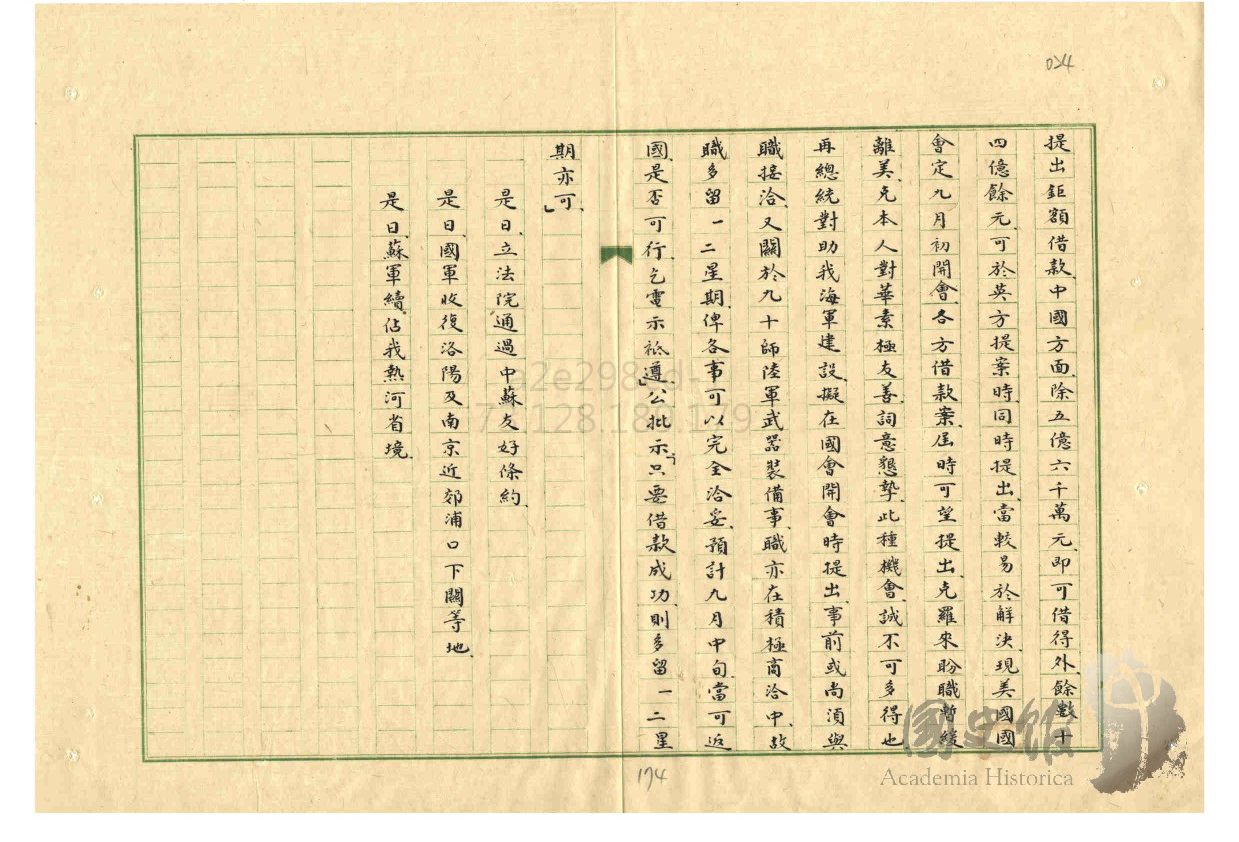 024
提出鉅額借款、中國方面、除五億六千萬元、即可借得外餘數十
四億餘元、可於英方提案時、同時提出、當較易於解決、現美國國
會定九月初開會、各方借款案、屆時可望提出、克羅來盼職暫緩
離美、克本人對華素極友善、詞意懇摯、此種機會、誠不可多得也、
再總統對助我海軍建設、擬在國會開會時提出、事前或尚須與
職接洽、又關於九十師陸軍武器裝備事、職亦在積極商洽中、故
職多留一二星期、俾各事可以完全洽妥、預計九月中旬、當可返
國、是否可行、乞電示祗遵」公批示「只要借款成功、則多留一二星
期亦可、」
是日、立法院通過中蘇友好條約、
是日、國軍收復洛陽及南京近郊浦口下關等地、
是日、蘇軍續佔我熱河省境、
174
a2e298
國史館
Academia Historica